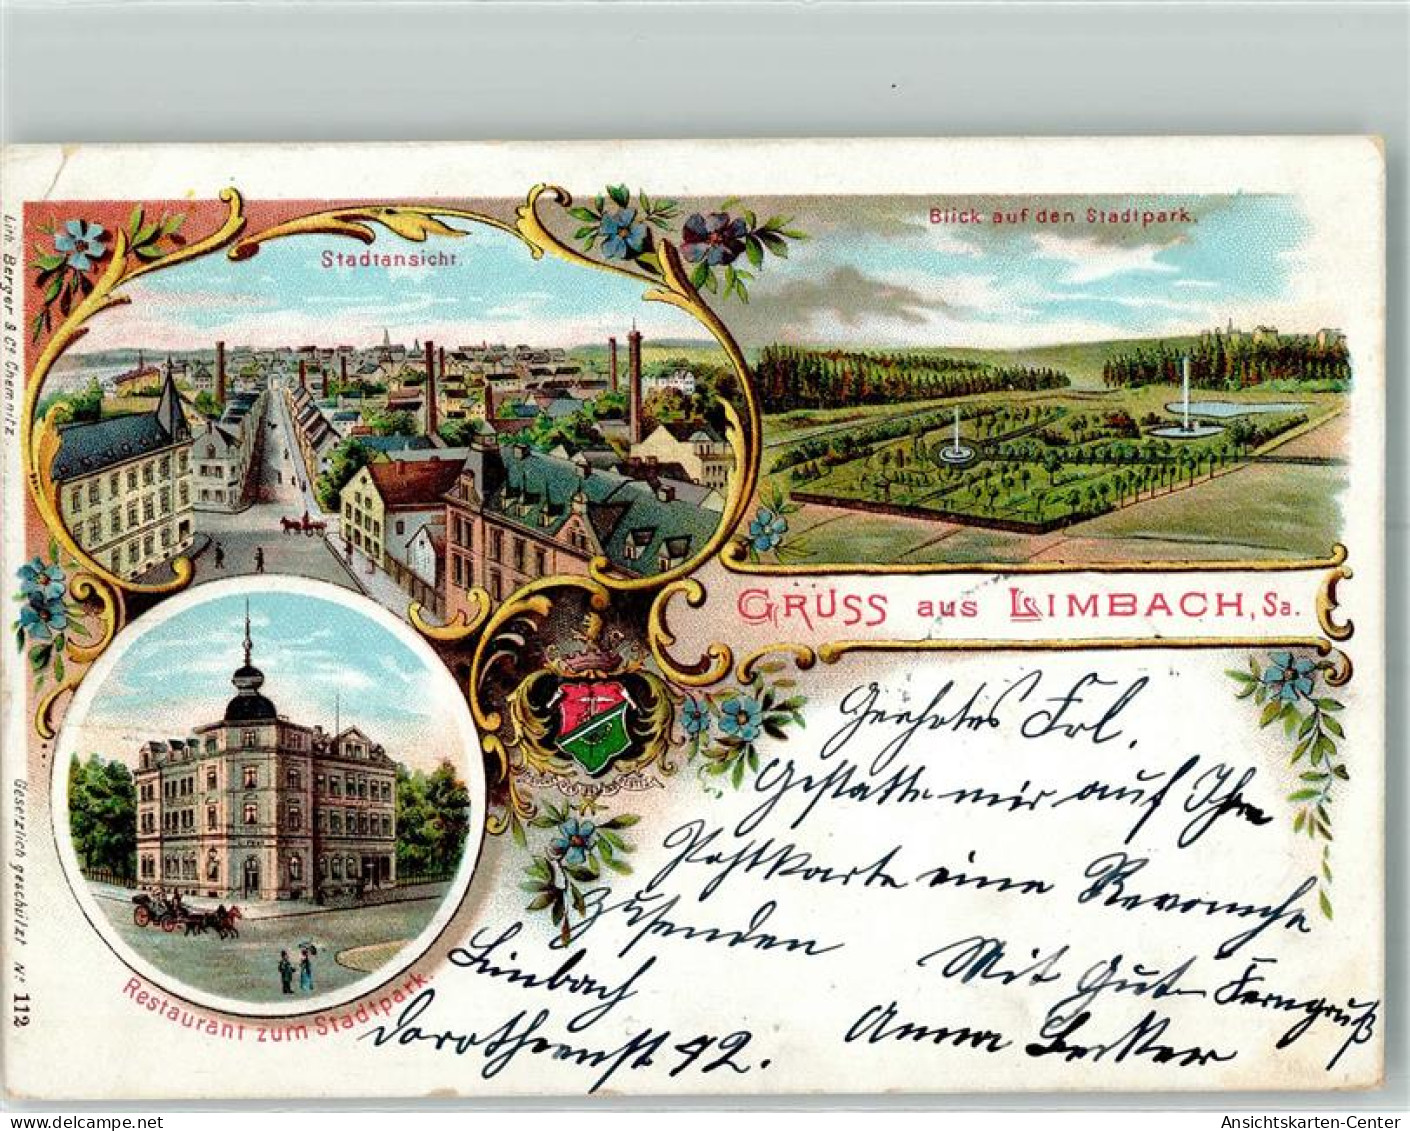 Stadtansicht.
Blick auf den Stadtpark.
GRUSS aus LIMBACH, Sa.
Restaurant zum Stadtpark.
Lith. Berger & Co Chemnitz
Gesetzlich geschützt No 112
Geehrtes Frl.
Gestatte mir auf Ihre
Postkarte eine Revanche
zusenden
Mit Guten Ferngruß
Limbach
Dorotheenst 42.
Anna
Ansichtskarten-Center